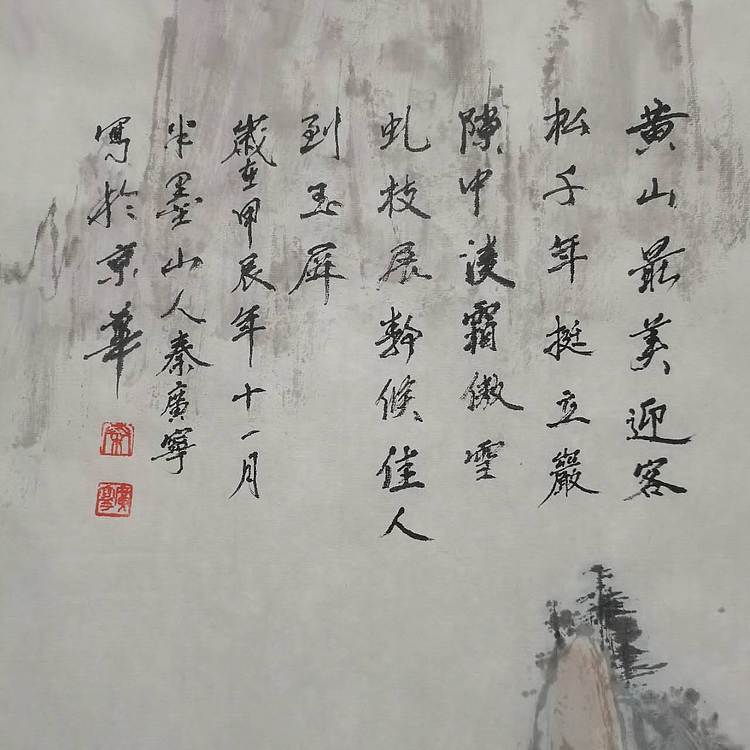 黄山最美迎客
松千年挺立巖
隙中凌霜傲雪
虬枝展幹候佳人
到玉屏
歲在甲辰年十一月
半墨山人秦廣寧
寫於京華
秦
廣寧